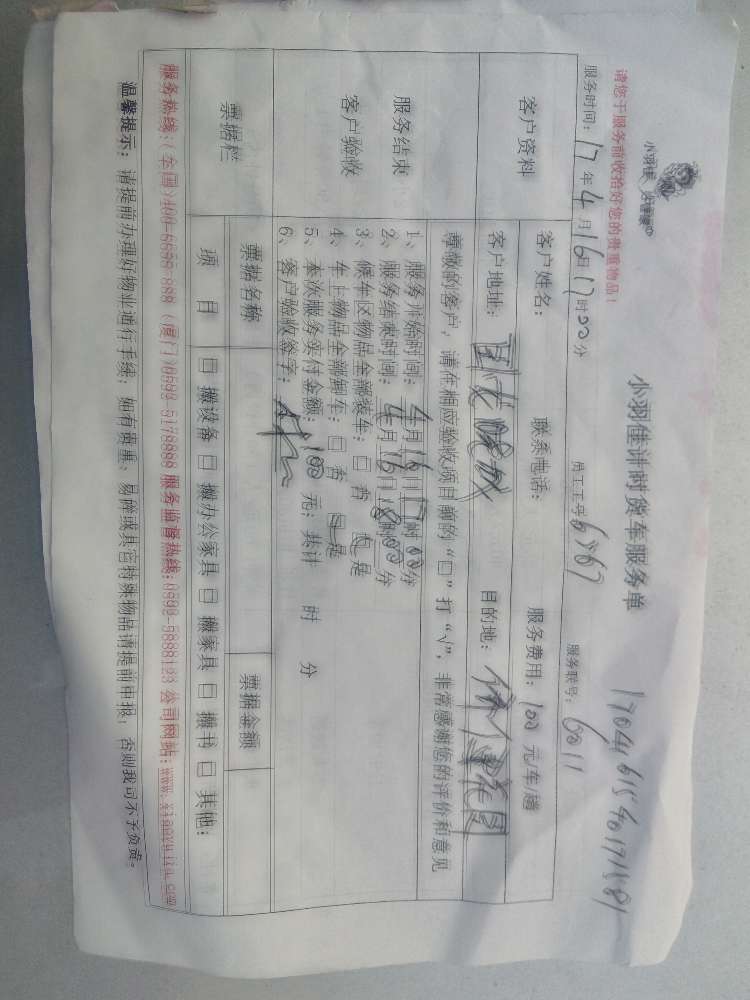 小羽佳计时货车服务单
170416154017181
请您于服务前收拾好您的贵重物品!
服务时间: 17 年 4 月 16 日 17 时 00 分 员工工号 6767 服务联号: 6011
客户资料
客户姓名: 联系电话: 服务费用: 100 元/车/趟
客户地址: 目的地:
尊敬的客户,请在相应验收项目前的“□”打“√”,非常感谢您的评价和意见
服务结束
客户验收
1、服务开始时间: 4月16日17时00分
2、服务结束时间: 4月16日18时00分
3、候车区物品全部装车: □ 否 ☑ 是
4、车上物品全部卸车: □ 否 ☑ 是
5、本次服务实付金额: 100 元; 共计 时 分
6、客户验收签字:
票据栏
票据名称 票据金额
项目 □ 搬设备 □ 搬办公家具 □ 搬家具 □ 搬书 □ 其他:
服务热线:(全国)400-8898-888 (厦门)0592-5178888 服务监督热线:0592-5888123 公司网站:www.xiaoyujia.com
温馨提示: 请提前办理好物业通行手续, 如有贵重、易碎或具它特殊物品请提前申报! 否则我司不予负责。